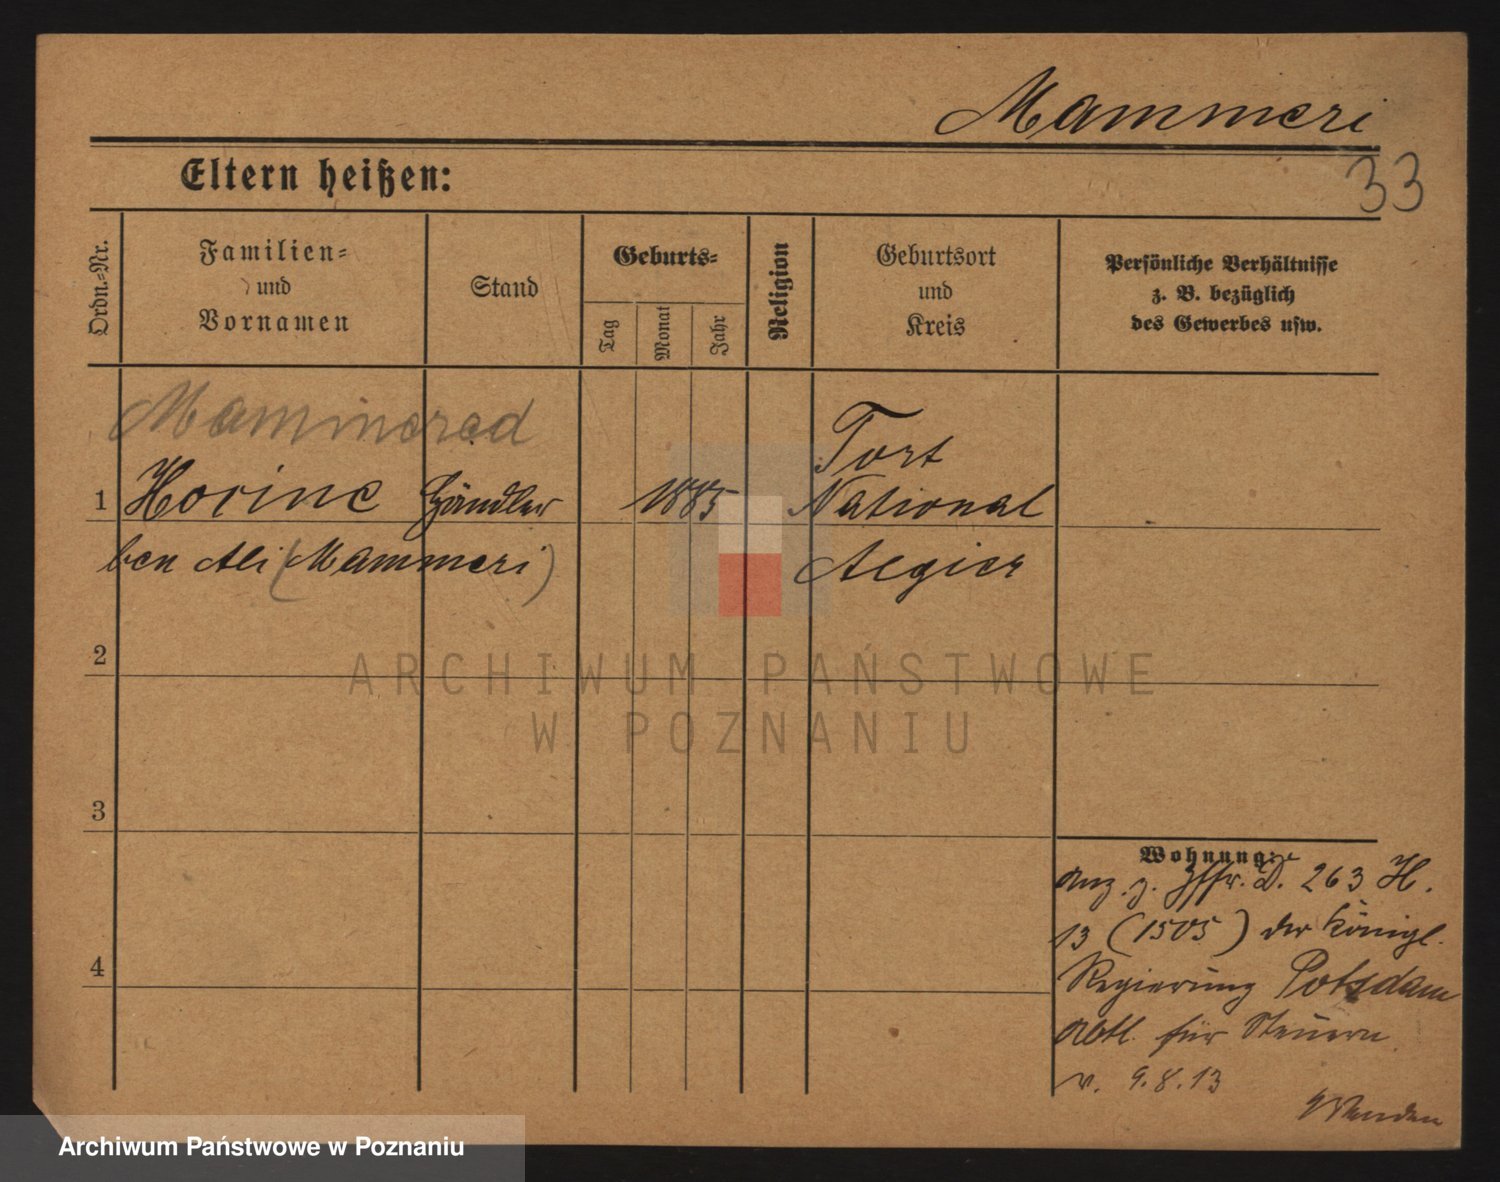 Mammeri
33
Eltern heißen:
Ordn.-Nr.
Familien-
und
Vornamen
Stand
Geburts-
Tag
Monat
Jahr
Religion
Geburtsort
und
Kreis
Persönliche Verhältnisse
z. B. bezüglich
des Gewerbes usw.
Mammerad
1 Horine Händler 1885 Fort
National
ben Ali (Mammeri) Algier
2
3
4
Wohnung:
Anz. z. D. 263 H.
13 (1505) der Königl.
Regierung Potsdam
Abtl. für Steuern
v. 9.8.13
Wenden
ARCHIWUM PAŃSTWOWE
W POZNANIU
Archiwum Państwowe w Poznaniu